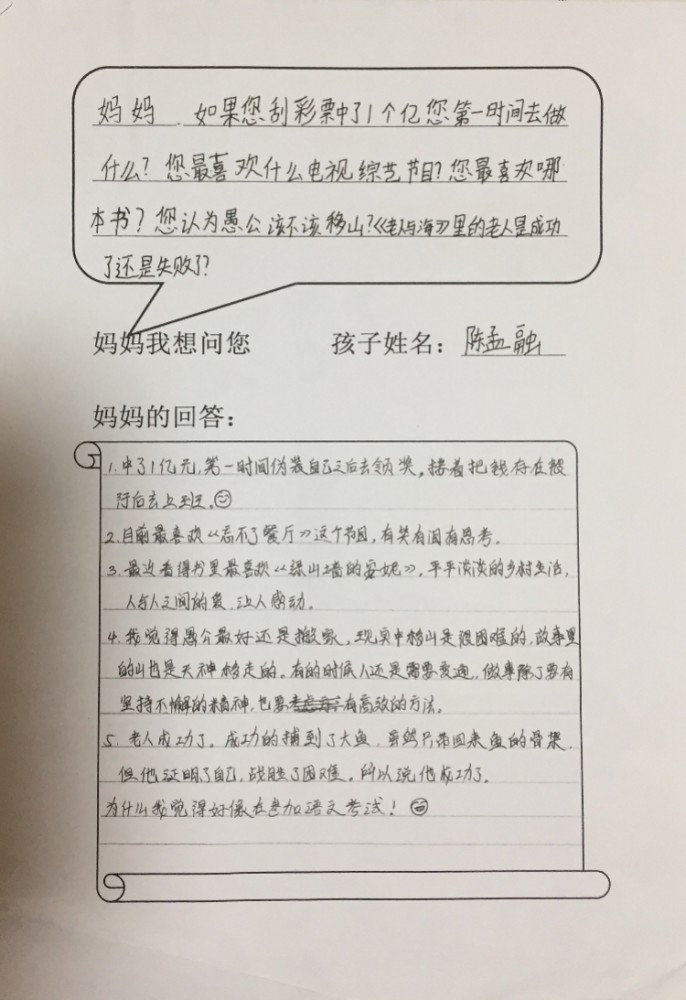 妈妈、如果您刮彩票中了1个亿您第一时间去做
什么?您最喜欢什么电视综艺节目?您最喜欢哪
本书?您认为愚公该不该移山?《老人与海》里的老人是成功
了还是失败了?
妈妈我想问您 孩子姓名:陈孟融
妈妈的回答:
1.中了1亿元,第一时间伪装自己之后去领奖。接着把钱存在银
行后去上班。
2.目前最喜欢《忘不了餐厅》这个节目,有笑有泪有思考。
3.最近看得书里最喜欢《绿山墙的安妮》,平平淡淡的乡村生活,
人与人之间的爱,让人感动。
4.我觉得愚公最好还是搬家,现实中移山是很困难的,故事里
的山也是天神移走的。有的时候人还是需要变通,做事除了要有
坚持不懈的精神,也要有高效的方法。
5.老人成功了。成功的捕到了大鱼,虽然只带回来鱼的骨架,
但他证明了自己,战胜了困难。所以说他成功了。
为什么我觉得好像在参加语文考试!